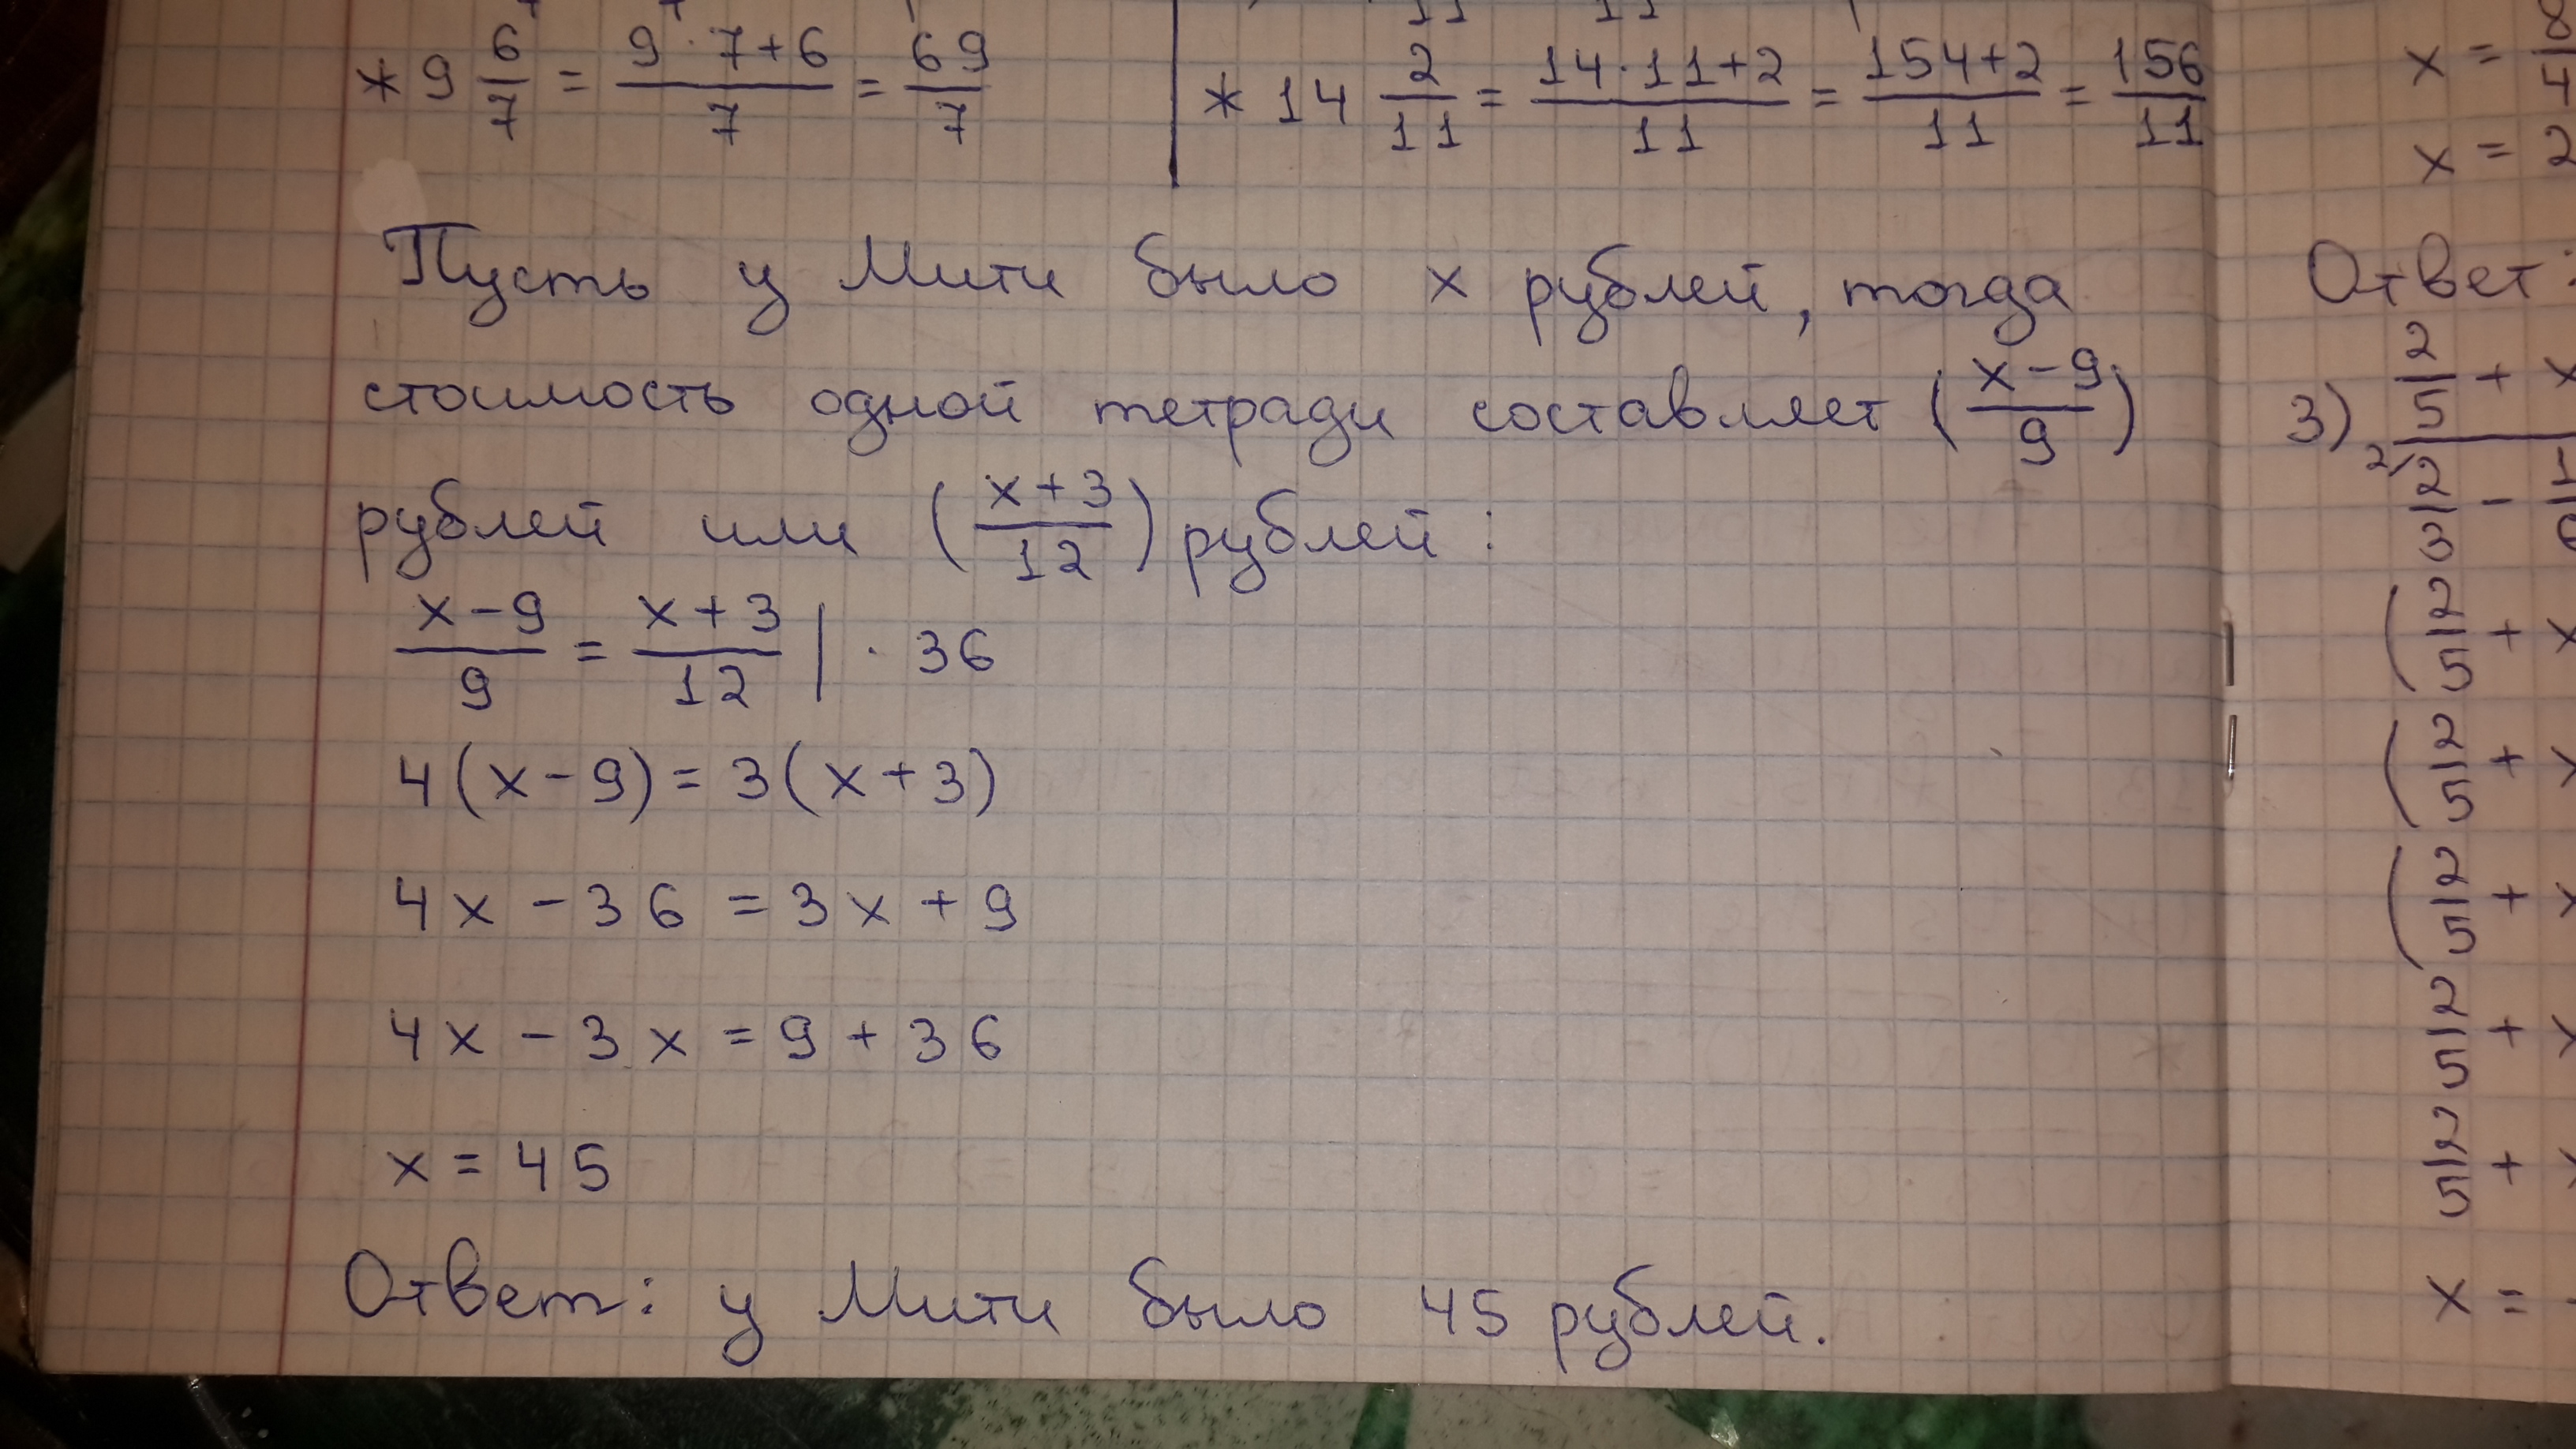 * 9 6/7 = (9·7+6)/7 = 69/7
* 14 2/11 = (14·11+2)/11 = (154+2)/11 = 156/11
Пусть у Мити было x рублей, тогда
стоимость одной тетради составляет ((x-9)/9)
рублей или ((x+3)/12) рублей:
(x-9)/9 = (x+3)/12 | · 36
4(x-9)=3(x+3)
4x - 36 = 3x + 9
4x - 3x = 9 + 36
x = 45
Ответ: у Мити было 45 рублей.
x = 8/4
x = 2
Ответ:
3) 2/5 + x
2/3 -
(2/5 + x
(2/5 + x
(2/5 + x
2/5 + x
2/5 + x
x =